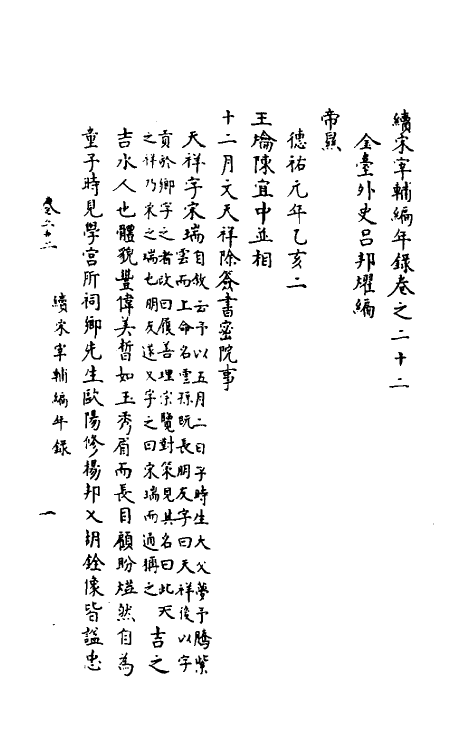 續宋宰輔編年錄卷之二十二
金臺外史呂邦燿編
帝㬎
德祐元年乙亥二
王爚陳宜中並相
十二月文天祥除簽書密院事
天祥字宋瑞自敘云予以五月二日子時生大父夢予騰紫
雲而上命名雲孫既長朋友字曰天祥後以字
貢於鄉字之者改曰履善理宗覽對策見其名曰此天
之祥乃宋之瑞也朋友遂又字之曰宋瑞而通稱之
吉之
吉水人也體貌豐偉美晳如玉秀眉而長目顧盼燁然自為
童子時見學宮所祠鄉先生歐陽修楊邦乂胡銓像皆諡忠
卷之二十二
續宋宰輔編年錄
一